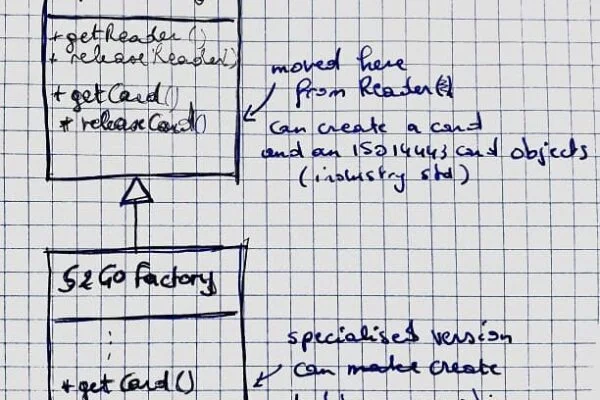 + getReader()
+ releaseReader()
+ getCard()
+ releaseCard()
moved here
from Reader
can create a card
and an ISO14443 card objects
(industry std)
S2GO Factory
+ getCard()
specialised version
can make create